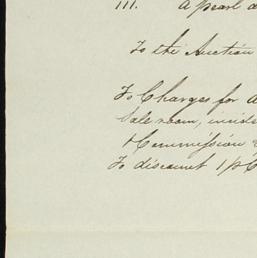 111. A pearl
To the Auction
To Charges for
Sale room,
& Commission
To discount 1 p C